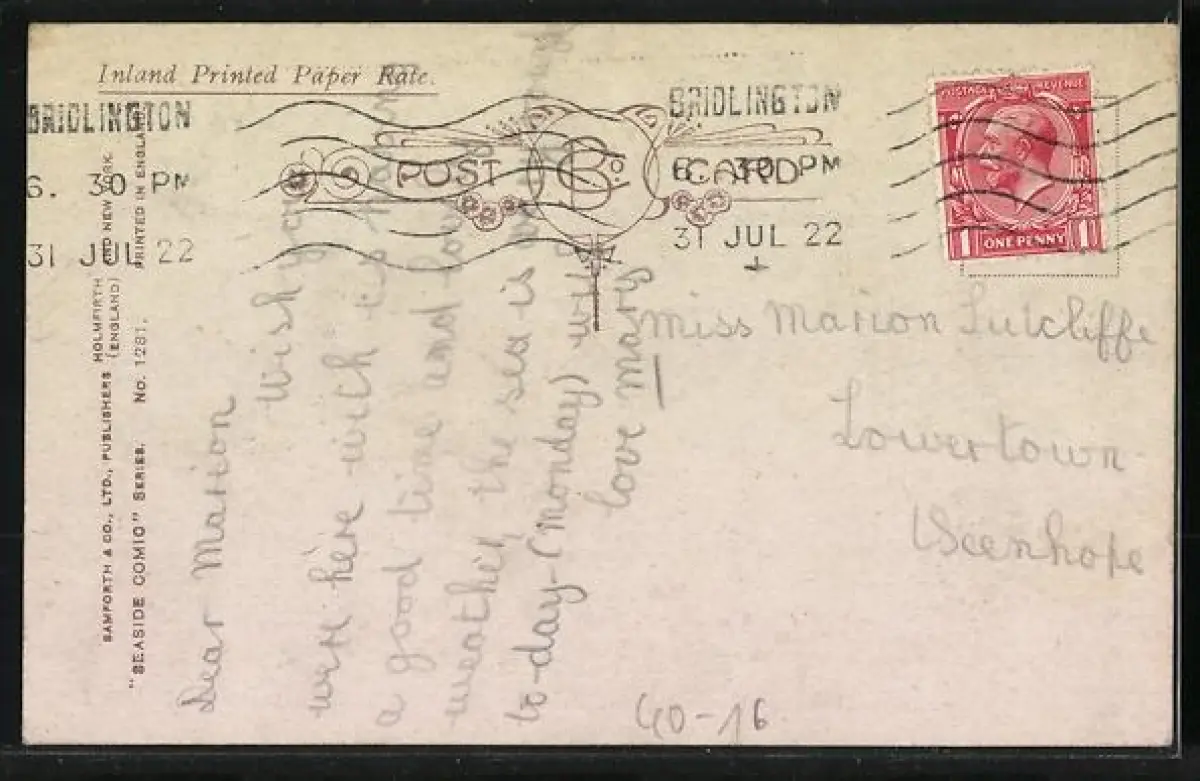 Inland Printed Paper Rate.
BRIDLINGTON
6. 30 PM
31 JUL 22
POST CARD
BRIDLINGTON
6. 30 PM
31 JUL 22
POSTAGE REVENUE
1 ONE PENNY 1
BAMFORTH & CO., LTD., PUBLISHERS HOLMFIRTH (ENGLAND) AND NEW YORK
"SEASIDE COMIC" SERIES. No. 1281. PRINTED IN ENGLAND
Dear Marion
Wish you
were here with us
a good time and
weather, the sea is
to-day-(Monday) with
love Mary
Miss Marion Sutcliffe
Lowertown
40-16